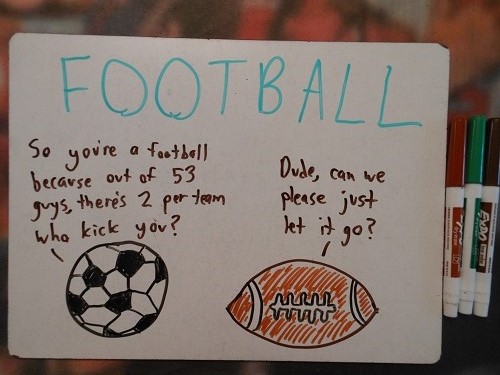 FOOTBALL
So you're a football
because out of 53
guys, there's 2 per team
who kick you?
Dude, can we
please just
let it go?
EXPO